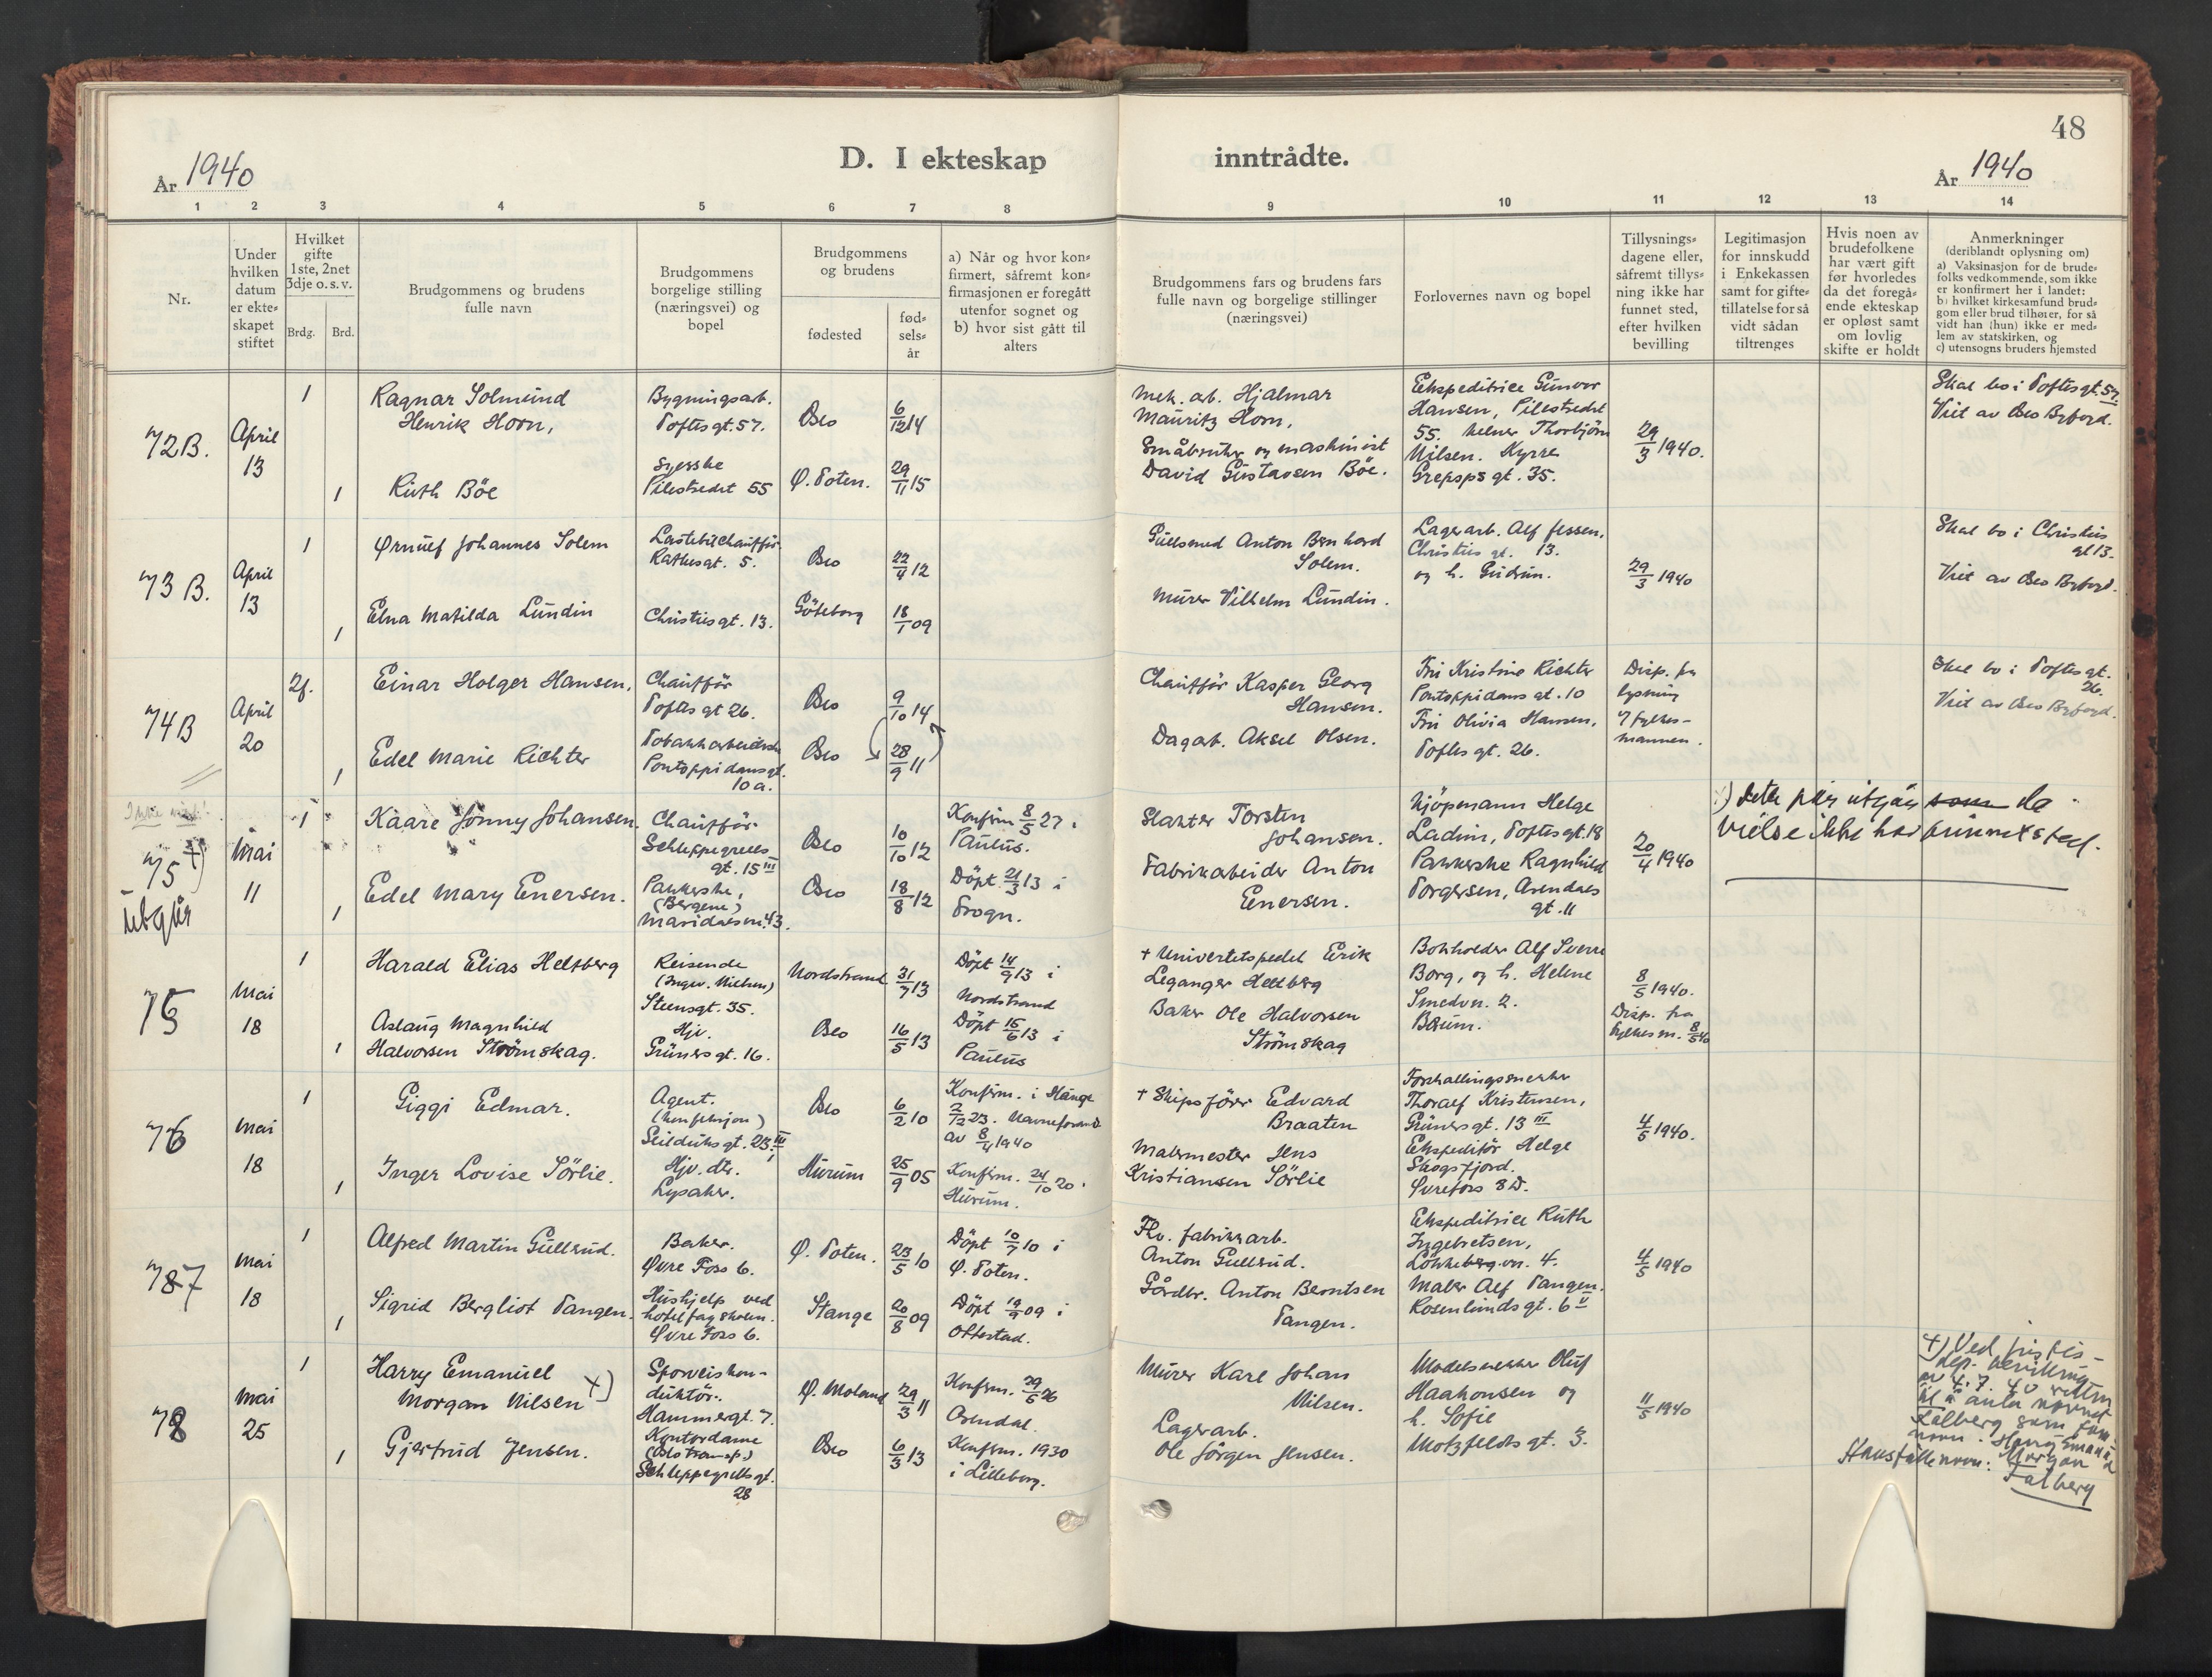 48
D. I ekteskap inntrådte.
År 1940
År 1940
1 2 3 4 5 6 7 8 9 10 11 12 13 14
Nr.
Under
hvilken
datum
er ekte-
skapet
stiftet
Hvilket
gifte
1ste, 2net
3dje o. s. v.
Brdg. Brd.
Brudgommens og brudens
fulle navn
Brudgommens
borgelige stilling
(næringsvei) og
bopel
Brudgommens
og brudens
fødested
fød-
sels-
år
a) Når og hvor kon-
firmert, såfremt kon-
firmasjonen er foregått
utenfor sognet og
b) hvor sist gått til
alters
Brudgommens fars og brudens fars
fulle navn og borgelige stillinger
(næringsvei)
Forlovernes navn og bopel
Tillysnings-
dagene eller,
såfremt tillys-
ning ikke har
funnet sted,
efter hvilken
bevilling
Legitimasjon
for innskudd
i Enkekassen
samt for gifte-
tillatelse for så
vidt sådan
tiltrenges
Hvis noen av
brudefolkene
har vært gift
før hvorledes
da det foregå-
ende ekteskap
er opløst samt
om lovlig
skifte er holdt
Anmerkninger
(deriblandt oplysning om)
a) Vaksinasjon for de brude-
folks vedkommende, som ikke
er konfirmert her i landet:
b) hvilket kirkesamfund brud-
gom eller brud tilhører, for så
vidt han (hun) ikke er med-
lem av statskirken, og
c) utensogns bruders hjemsted
72B.
April
13
1
Ragnar Solmund
Henrik Horn,
Bygningsarb.
Toftesgt. 57.
Oslo
6/12 14
1
Ruth Böe
Syerske
Pilestredet 55
Ø. Toten.
29/11 15
Mek. arb. Hjalmar
Mauritz Horn,
Småbruker og maskinist
David Gustavsen Böe.
Ekspeditrice Gunvor
Hansen, Pilestredet
55. Kelner Thorbjörn
Nilsen. Kyrre
Grepsgt. 35.
29/3 1940.
Skal bo i Toftesgt. 57.
Viet av Oslo Byford.
73 B.
April
13
1
Ørnulf Johannes Solem
Lastebilchauffør
Rathesgt. 5.
Oslo
22/4 12
1
Elna Matilda Lundin
Christiesgt. 13.
Göteborg
18/1 09
Gullsmed Anton Bernhard
Solem.
Murer Vilhelm Lundin.
Lagerarb. Alf Jessen,
Christies gt. 13.
og h. Gudrun.
29/3 1940
Skal bo i Christies
gt 13.
Viet av Oslo Byford.
74B
April
20
2g.
Einar Holger Hansen,
Chaufför
Toftes gt 26.
Oslo
9/10 14
1
Edel Marie Richter
Tobakkarbeiderske
Pontoppidansgt.
10 a.
Oslo
28/9 11
Chaufför Kasper Georg
Hansen.
Dagarb. Aksel Olsen.
Fru Kristine Richter
Pontoppidans gt. 10
Fru Olivia Hansen,
Toftes gt. 26.
Disp. fra
lysning
f fylkes-
mannen.
Skal bo i Toftes gt.
26.
Viet av Oslo Byford.
Ikke viet!
75 +)
utgår
Mai
11
1
Kaare Jonny Johansen.
Chauffør
Schleppegrells
gt. 15 III
Oslo
10/10 12
Konfirm 8/5 27 i
Paulus.
1
Edel Mary Enersen.
Pakkerske,
(Bergene)
Maridalsvn. 43.
Oslo
18/8 12
Döpt 21/3 13 i
Frogn.
Slakter Torsten
Johansen.
Fabrikarbeider Anton
Enersen.
Kjöpmann Helge
Ladim, Toftesgt. 18
Pakkerske Ragnhild
Torgersen, Arendals
gt. 11
20/4 1940
+) Dette par utgår som da
vielse ikke har funnet sted.
75
Mai
18
1
Harald Elias Heltberg
Reisende
(Ingv. Nielsen)
Steensgt. 35.
Nordstrand
31/7 13
Döpt 14/9 13 i
Nordstrand
1
Aslaug Magnhild
Halvorsen Strömskag.
Hjv.
Grünersgt. 16.
Oslo
16/5 13
Döpt 15/6 13 i
Paulus
+ Univertetspedel Erik
Leganger Heltberg
Baker Ole Halvorsen
Strömskag
Bokholder Alf Sverre
Borg, og h. Helene
Smedvn. 2.
Bærum.
8/5 1940.
Disp. fra
fylkesm. 8/5 40
76
Mai
18
1
Giggi Edmar.
Agent.
(konfeksjon)
Seilduksgt. 23. III
Oslo
6/2 10
Konfirm. i Stange
2/12 23. Navneforand.
av 8/4 1940
1
Inger Lovise Sörlie.
Hjv. dtr.
Lysaker.
Hurum
25/9 05
Konfirm. 24/10 20 i
Hurum.
+ Skipsfører Edvard
Braaten
Malermester Jens
Kristiansen Sörlie
Forskallingssnekker
Thoralf Kristensen,
Grünersgt. 13 III
Ekspeditör Helge
Skogsfjord.
Øvrefoss 8D.
4/5 1940.
787
Mai
18
1
Alfred Martin Gullerud.
Baker.
Øvre Foss 6.
Ø. Toten.
23/5 10
Döpt 10/7 10 i
Ø. Toten.
1
Sigrid Bergliot Tangen.
Hushjelp ved
hotellfagskolen.
Øvre Foss 6.
Stange
20/8 09
Döpt 19/9 09 i
Ottestad.
Fhv. fabrikkarb.
Anton Gullerud.
Gårdbr. Anton Berntsen
Tangen.
Ekspeditrice Ruth
Ingebretsen,
Lökkeberg.vn. 4.
Maler Alf Tangen.
Rosenlundsgt. 6 V
4/5 1940
78
Mai
25
1
Harry Emanuel
Morgan Nilsen +)
Sporveiskon-
duktör.
Hammersgt. 7.
Ø. Moland
29/3 11
Konfirm. 29/5 26
Arendal.
1
Gjertrud Jensen.
Kontordame
(Oslo transp.)
Schleppegrellsgt.
28
Oslo
6/3 13
Konfirm. 1930
i Lilleborg.
Murer Karl Johan
Nilsen.
Lagerarb.
Ole Jörgen Jensen.
Modellsnekker Oluf
Haakonsen og
h. Sofie
Motzfeldts gt. 3.
11/5 1940
+) Ved justis-
dep. bevilling
av 4. 7. 40 retten
til å anta navnet
Falberg som fam.
navn. Harry Emanuel
Hans fulle navn: Morgan
Falberg